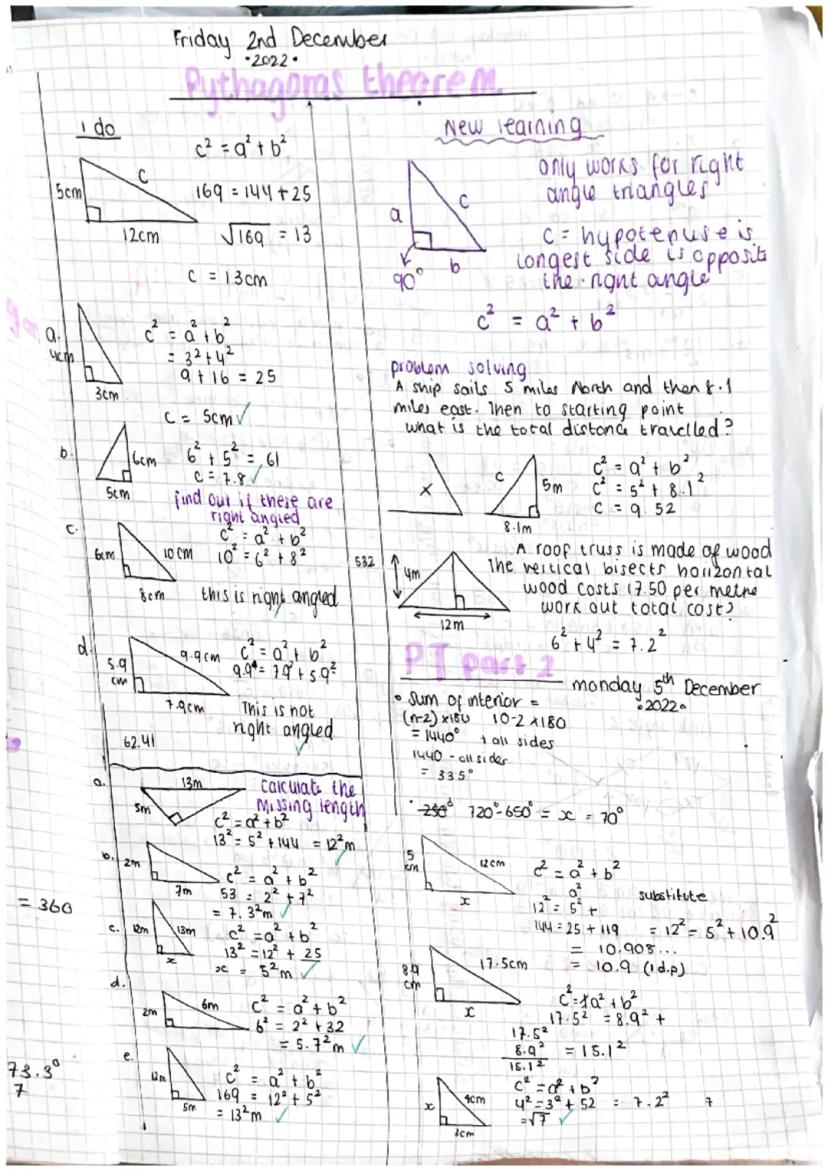 Friday 2nd December
•2022•
Pythagoras theorem
i do
c² = a² + b²
c
5cm
12cm
169 = 144 + 25
√169 = 13
c = 13cm
a.
4cm
3cm
c² = a² + b²
= 3² + 4²
9 + 16 = 25
c = 5cm ✓
b.
6cm
5cm
6² + 5² = 61
c = 7.8 ✓
find out if these are
right angled
c.
6cm
10cm
8cm
c² = a² + b²
10² = 6² + 8²
this is right angled
d.
5.9
cm
9.9cm
7.9cm
c² = a² + b²
9.9² = 7.9² + 5.9²
This is not
right angled
✓
62.41
a.
13m
5m
calculate the
missing length
c² = a² + b²
13² = 5² + 144 = 12²m
✓
b.
2m
7m
c² = a² + b²
53 = 2² + 7²
= 7.3²m ✓
c.
12m
13m
x
c² = a² + b²
13² = 12² + 25
x = 5²m ✓
d.
2m
6m
c² = a² + b²
6² = 2² + 32
= 5.7²m ✓
e.
12m
5m
c² = a² + b²
169 = 12² + 5²
= 13²m ✓
= 360
73.3°
7
New learning
a
c
b
90°
only works for right
angle triangles
c = hypotenuse is
longest side is opposite
the right angle
c² = a² + b²
problem solving
A ship sails 5 miles North and then 8.1
miles east. Then to starting point
what is the total distance travelled?
x
c
5m
8.1m
c² = a² + b²
c² = 5² + 8.1²
c = 9.52
532
4m
12m
A roof truss is made of wood
The vertical bisects horizontal
wood costs 17.50 per metre
work out total cost?
6² + 4² = 7.2²
PT part 2
monday 5th December
•2022•
• sum of interior =
(n-2) x180 10-2 x180
= 1440° + all sides
1440 - all sides
= 335°
• 250° 720° - 650° = x = 70°
5
cm
12cm
x
c² = a² + b²
a²
12² = 5² +
substitute
144 = 25 + 119 = 12² = 5² + 10.9²
= 10.908...
= 10.9 (1d.p)
8.9
cm
17.5cm
x
c² = a² + b²
17.5² = 8.9² +
17.5²
8.9² = 15.1²
15.1²
x
4cm
3cm
c² = a² + b²
4² = 3² + 52 = 7.2² 7
= √7 ✓